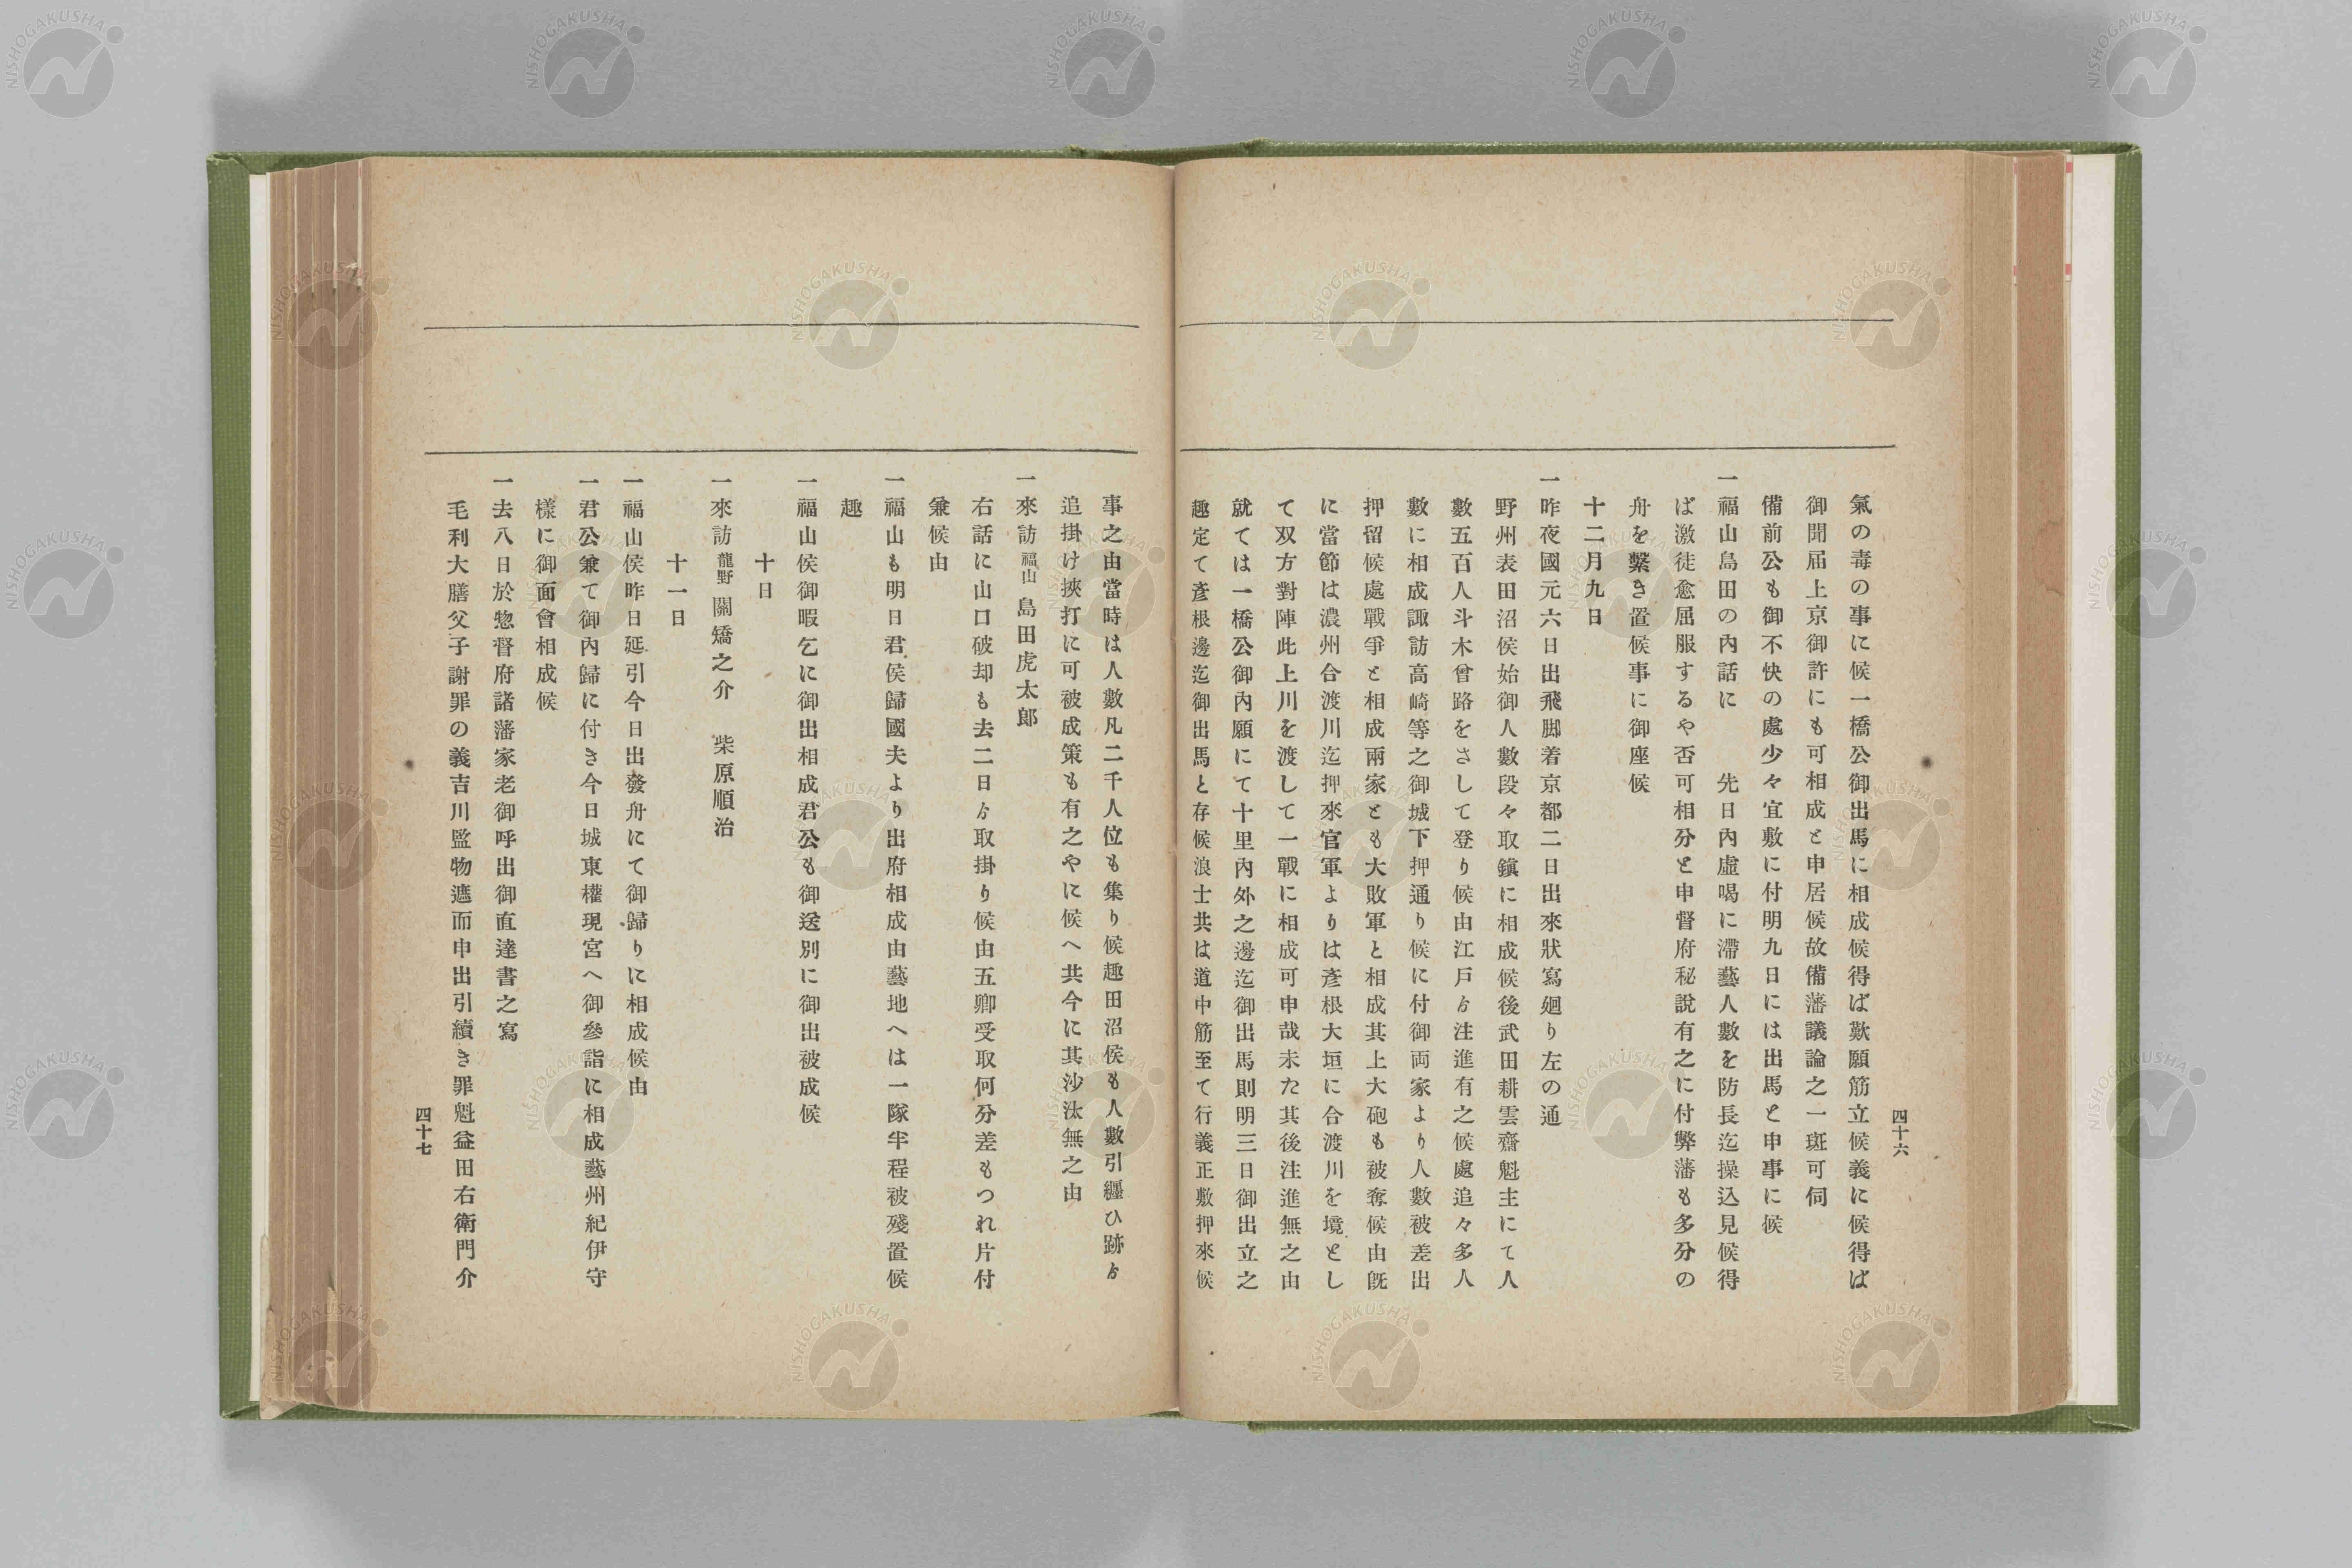 四十六
氣の毒の事に候一橋公御出馬に相成候得ば歎願筋立候義に候得ば
御聞届上京御許にも可相成と申居候故備藩議論之一斑可伺
備前公も御不快の處少々宜敷に付明九日には出馬と申事に候
一福山島田の內話に　先日內虛喝に滯藝人數を防長迄操込見候得
ば激徒愈屈服するや否可相分と申督府秘說有之に付弊藩も多分の
舟を繫き置候事に御座候
十二月九日
一昨夜國元六日出飛脚着京都二日出來狀寫廻り左の通
野州表田沼侯始御人數段々取鎭に相成候後武田耕雲齋魁主にて人
數五百人斗木曾路をさして登り候由江戶ゟ注進有之候處追々多人
數に相成諏訪高崎等之御城下押通り候に付御両家より人數被差出
押留候處戰爭と相成兩家とも大敗軍と相成其上大砲も被奪候由旣
に當節は濃州合渡川迄押來官軍よりは彥根大垣に合渡川を境とし
て双方對陣此上川を渡して一戰に相成可申哉未た其後注進無之由
就ては一橋公御內願にて十里內外之邊迄御出馬則明三日御出立之
趣定て彥根邊迄御出馬と存候浪士共は道中筋至て行義正敷押來候
事之由當時は人數凡二千人位も集り候趣田沼侯も人數引纒ひ跡ゟ
追掛け挾打に可被成策も有之やに候へ共今に其沙汰無之由
一來訪福山 島田虎太郞
右話に山口破却も去二日ゟ取掛り候由五卿受取何分差もつれ片付
兼候由
一福山も明日君侯歸國夫より出府相成由藝地へは一隊半程被殘置候
趣
一福山侯御暇乞に御出相成君公も御送別に御出被成候
十日
一來訪龍野 關矯之介　柴原順治
十一日
一福山侯昨日延引今日出發舟にて御歸りに相成候由
一君公兼て御內歸に付き今日城東權現宮へ御參詣に相成藝州紀伊守
樣に御面會相成候
一去八日於惣督府諸藩家老御呼出御直達書之寫
毛利大膳父子謝罪の義吉川監物遮而申出引續き罪魁益田右衛門介
四十七
NISHOGAKUSHA